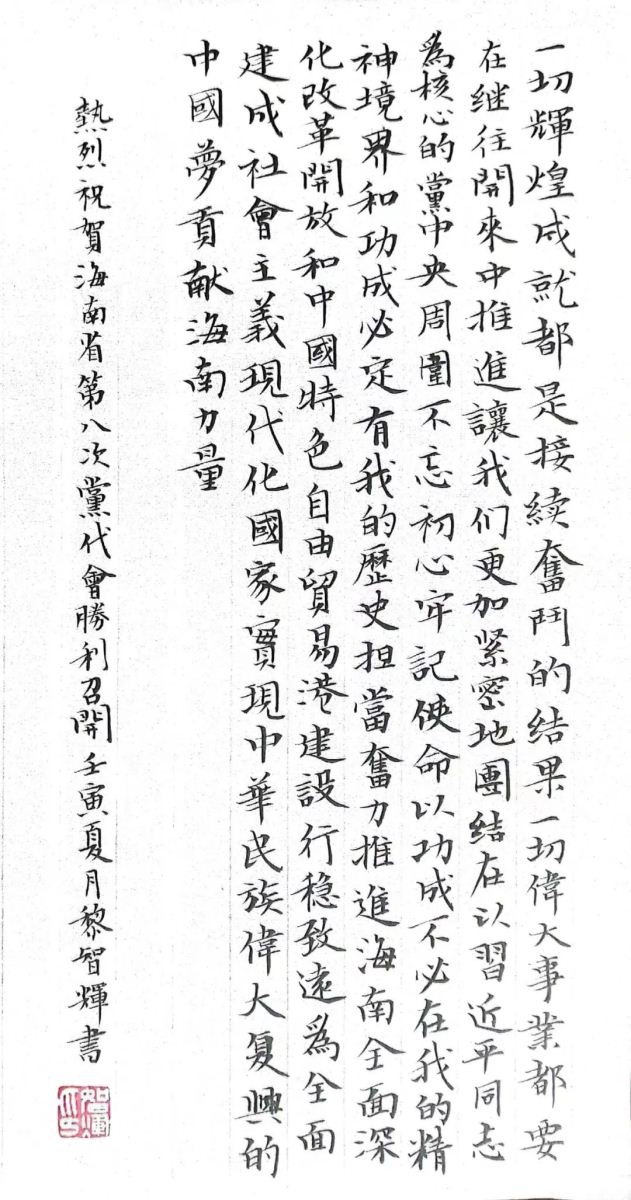 一切輝煌成就都是接續奮鬥的结果一切偉大事業都要
在继往開來中推進讓我们更加紧密地團结在以習近平同志
為核心的黨中央周圍不忘初心牢記使命以功成不必在我的精
神境界和功成必定有我的歷史担當奮力推進海南全面深
化改革開放和中國特色自由貿易港建設行稳致遠為全面
建成社會主義現代化國家實現中華民族偉大复興的
中國夢貢献海南力量
熱烈祝賀海南省第八次黨代會勝利召開壬寅夏月黎智輝書